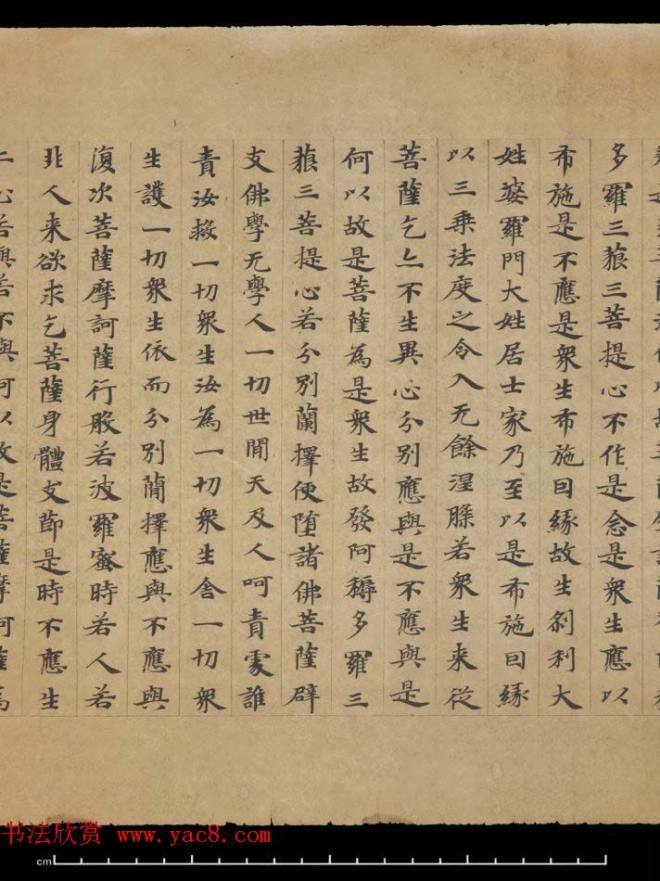 多羅三藐三菩提心不作是念是衆生應以
布施是不應是衆生布施囙緣故生剎利大
姓婆羅門大姓居士家乃至以是布施囙緣
以三乗法度之令入无餘涅槃若衆生来從
菩薩乞亦不生異心分别應與是不應與是
何以故是菩薩為是衆生故發阿耨多羅三
藐三菩提心若分别蕳擇便堕諸佛菩薩辟
支佛學无學人一切世間天及人呵責處誰
責汝救一切衆生汝為一切衆生舍一切衆
生護一切衆生依而分别蕳擇應與不應與
復次菩薩摩訶薩行般若波羅蜜時若人若
非人来欲求乞菩薩身體支莭是時不應生
二心若與若不與何以故是菩薩摩訶薩為
书法欣赏 www.yac8.com
cm